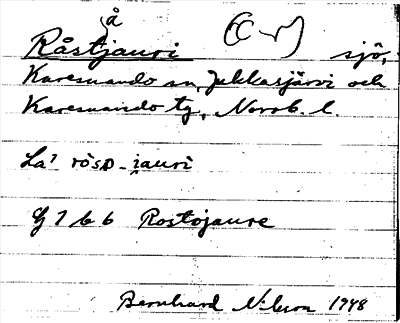 å
Råstjauri (C-r) sjö,
Karesuando sn, Jukkasjärvi och
Karesuando tg, Norrb. l.
La' rösD-jauri
G 7 b 6 Rostojaure
Bernhard Nilsson 1948